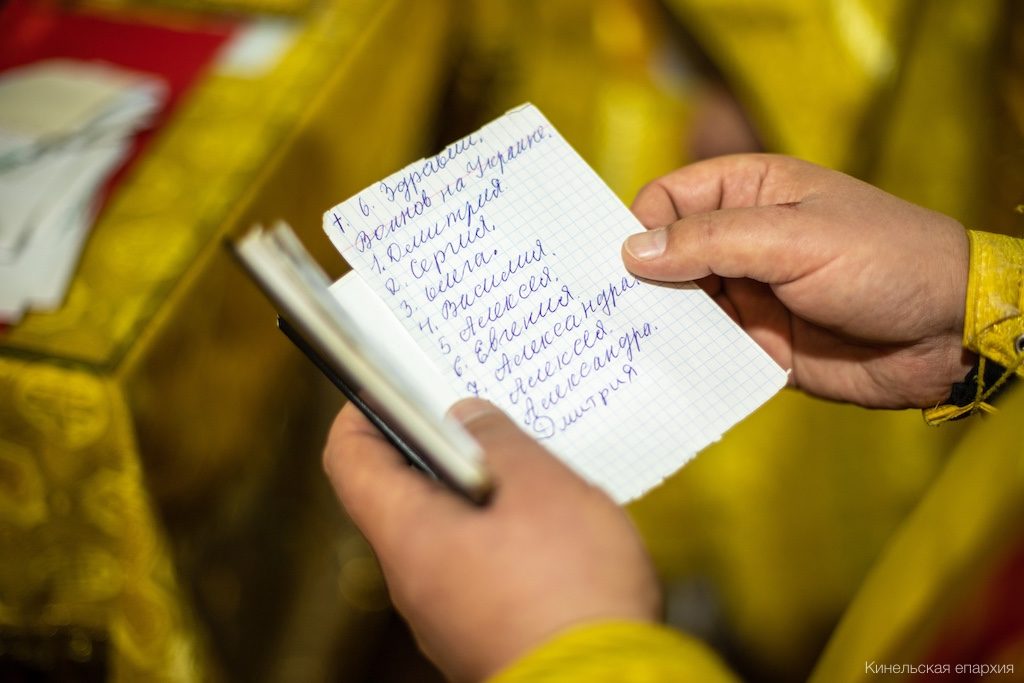 † б. Здравии.
Воинов на Украине.
1. Дмитрия.
2. Сергия.
3. Олега.
4. Василия.
5 Алексея.
6. Евгения
7. Александра.
Алексея
Александра.
Дмитрия
Кинельская епархия